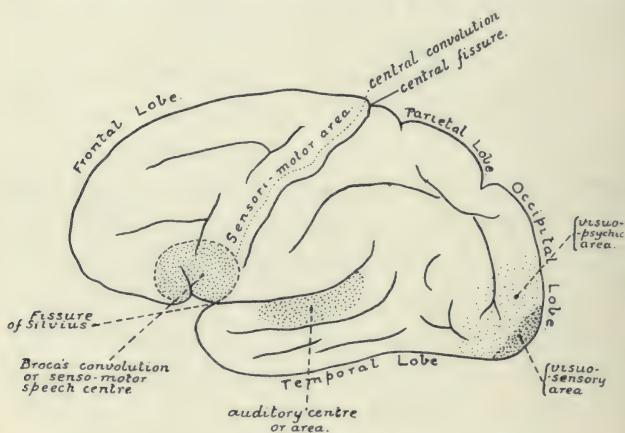 central convolution
central fissure.
Frontal Lobe.
Parietal Lobe
Sensori-motor area
Occipital Lobe
visuo-
-psychic
area.
Fissure
of Silvius
Broca's convolution
or senso-motor
speech centre
Temporal Lobe
auditory centre
or area.
visuo-
sensory
area